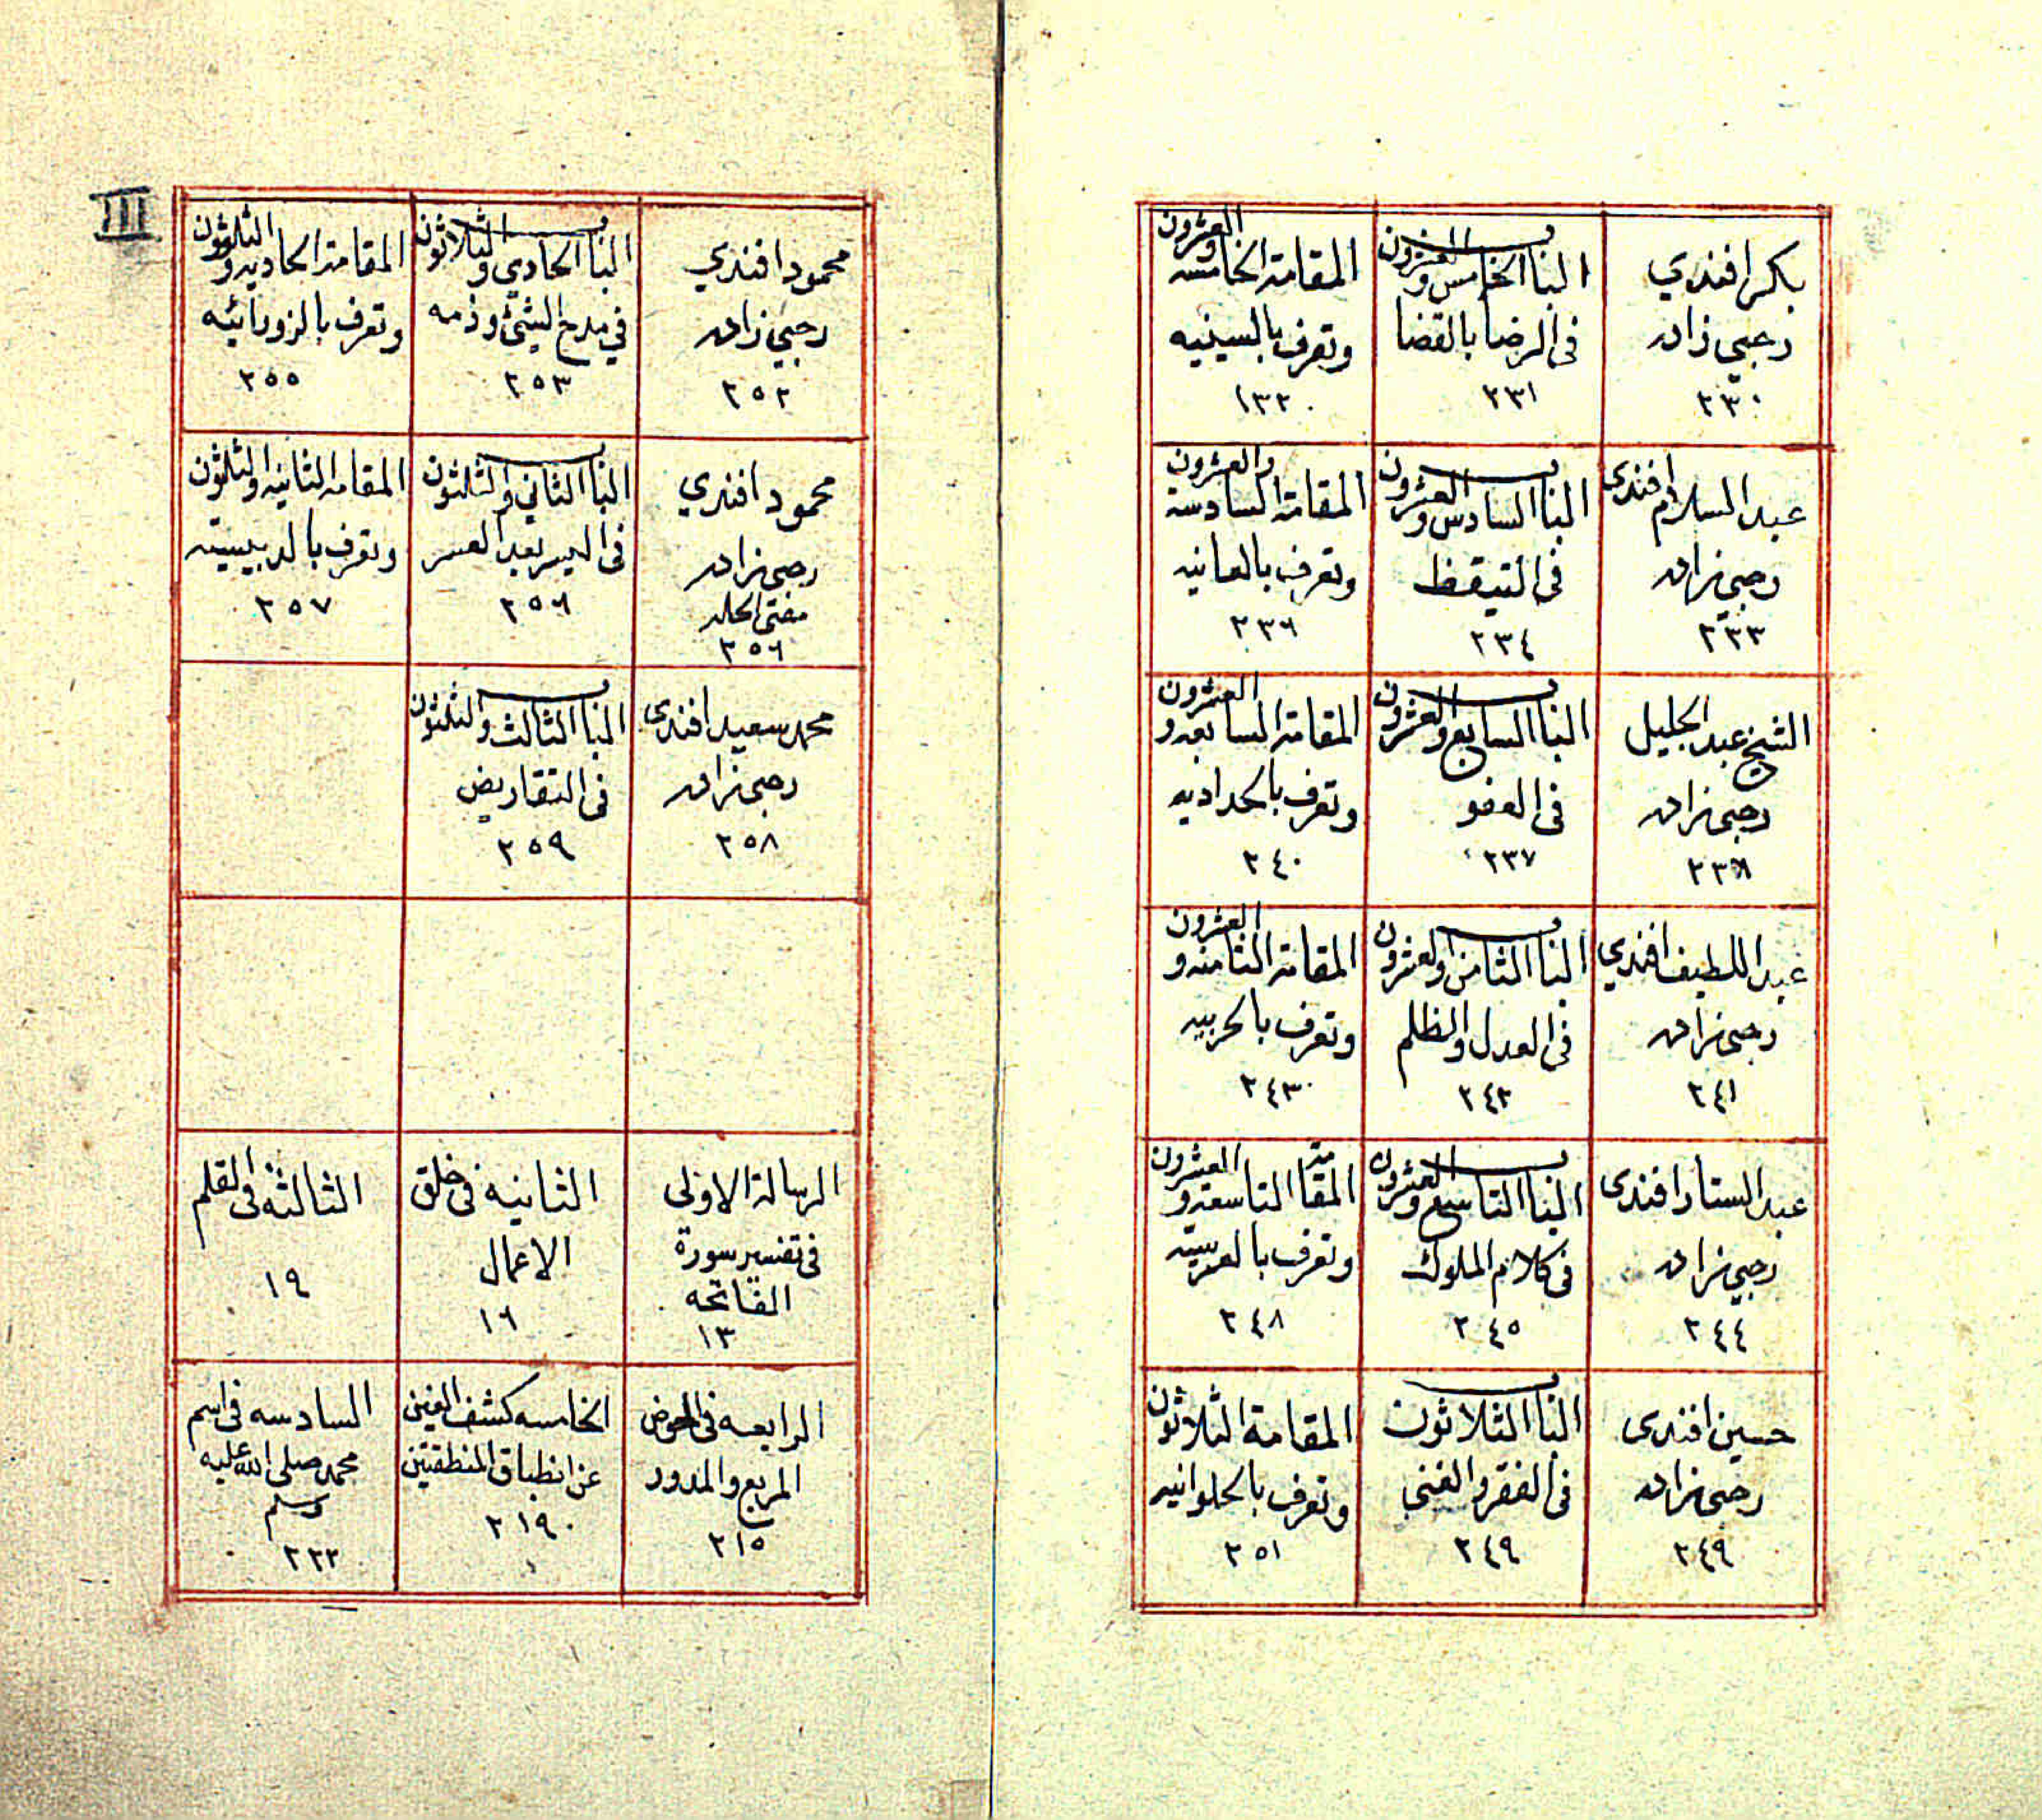 بكر افندي
رحبي زاده
٢٣٠
الباب الخامس والعشرون
في الرضا بالقضا
٢٣١
المقامة الخامسه والعشرون
وتعرف بالسينيه
١٣٢
عبد السلام افندي
رحبي زاده
٢٣٣
الباب السادس والعشرون
في التيقظ
٢٣٤
المقامة السادسة والعشرون
وتعرف بالعانيه
٢٣٦
الشيخ عبد الجليل
رحبي زاده
الباب السابع والعشرون
في العفو
٢٣٧
المقامة السابعه والعشرون
وتعرف بالحداديه
٢٤٠
عبد اللطيف افندي
رحبي زاده
٢٤١
الباب الثامن والعشرون
في العدل والظلم
٢٤٢
المقامة الثامنه والعشرون
وتعرف بالحربيه
٢٤٣
عبد الستار افندي
رحبي زاده
٢٤٤
الباب التاسع والعشرون
في كلام الملوك
٢٤٥
المقامة التاسعة والعشرون
وتعرف
٢٤٨
حسين افندي
رحبي زاده
٢٤٩
الباب الثلاثون
في الفقر والغنى
٢٤٩
المقامة الثلاثون
وتعرف بالحلوانيه
٢٥١
III
محمود افندي
رحبي زاده
٢٥٢
الباب الحادي والثلاثون
في مدح الشئ وذمه
٢٥٣
المقامة الحاديه والثلثون
وتعرف بالزورائيه
٢٥٥
محمود افندي
رحبي زاده
مفتي الحله
٢٥٦
الباب الثاني والثلثون
في اليسر بعد العسر
٢٥٦
المقامة الثانيه والثلثون
وتعرف بالدبيسيه
٢٥٧
محمد سعيد افندي
رحبي زاده
٢٥٨
الباب الثالث والثلثون
في التقاريض
٢٥٩
الرسالة الاولى
في تفسير سورة
الفاتحه
١٣
الثانيه في خلق
الاعمال
١٦
الثالثه في القلم
١٩
الرابعه في الحوض
المربع والمدور
٢١٥
الخامسه كشف الغين
عن انطباق المنطقتين
٢١٩
السادسه في اسم
محمد صلى الله عليه
وسلم
٢٢٢